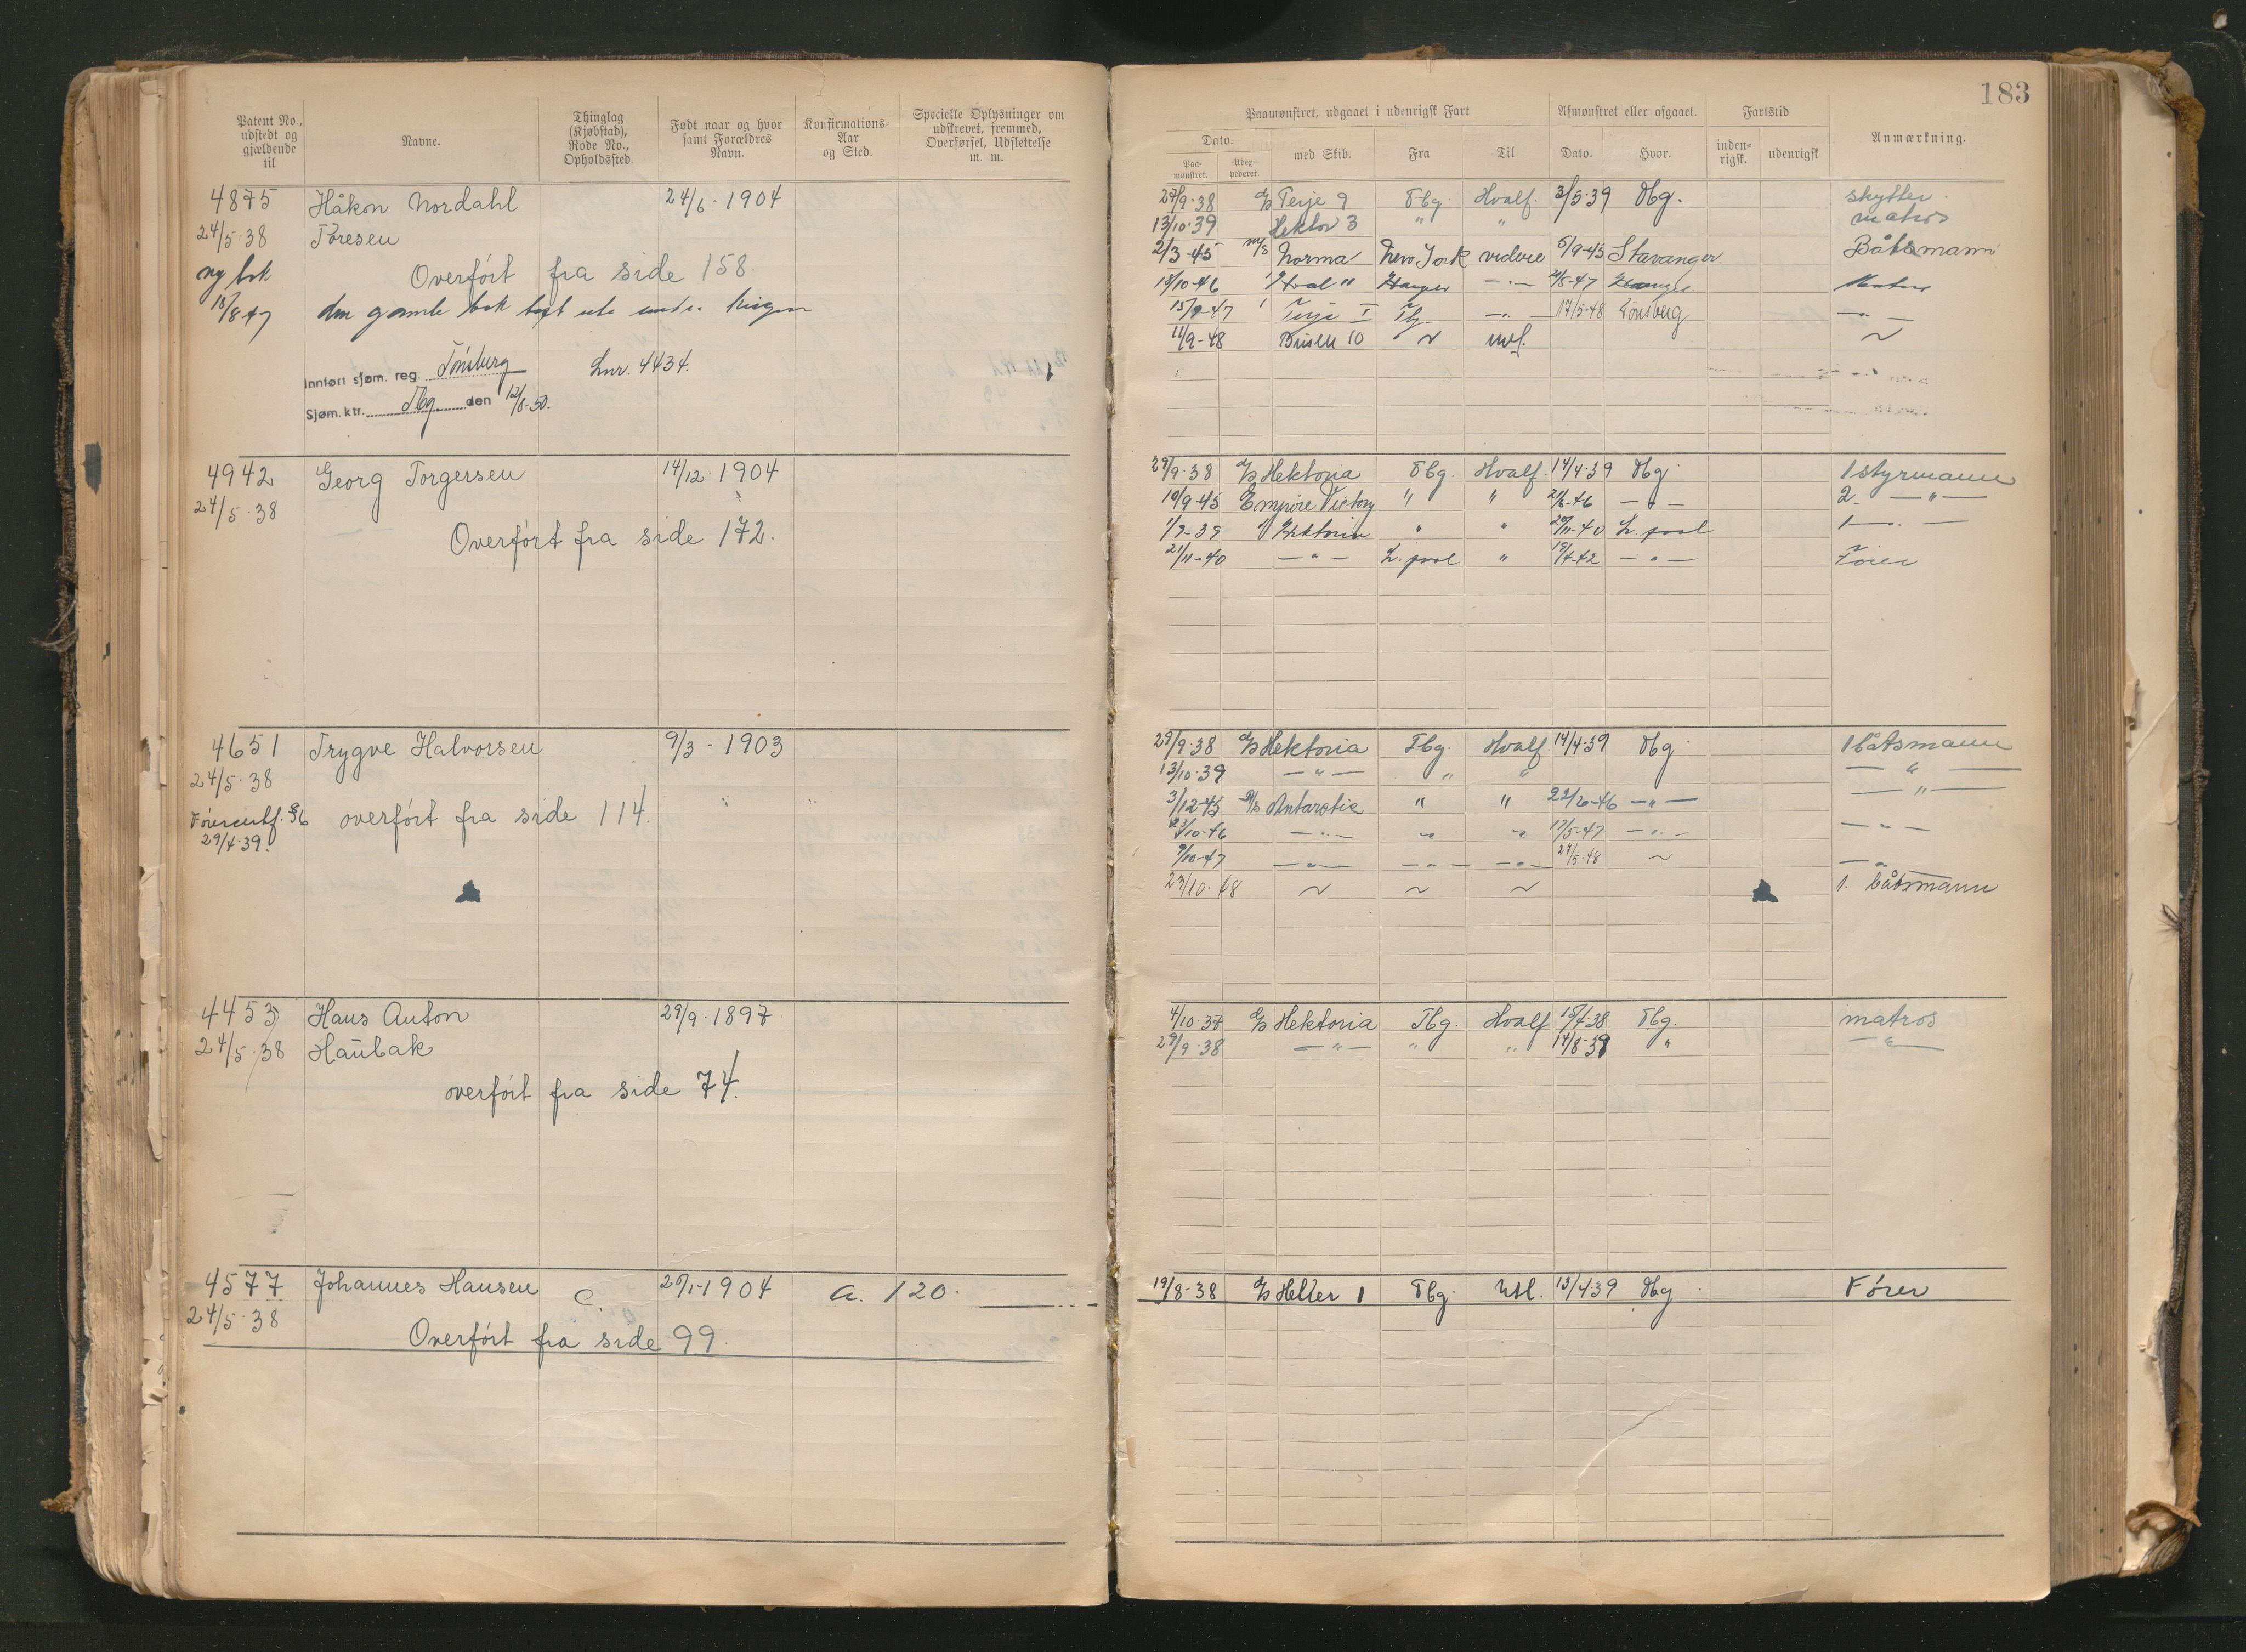 Patent No., udstedt og gjældende til
Navne.
Thinglag (Kjøbstad), Rode No., Opholdssted
Født naar og hvor samt Forældres Navn.
Konfirmations-Aar og Sted.
Specielle Oplysninger om udskrevet, fremmed, Overførsel, Udslettelse m. m.
4875 Håkon Nordahl 24/6-1904
24/5-38 Toresen
ny bok Overført fra side 158.
18/8 47 den gamle bok tapt ute under krigen
Innført sjøm. reg. Tönsberg Lnr. 4434.
Sjøm. ktr. Tbg den 12/8-50.
4942 Georg Torgersen 14/12-1904
24/5-38
Overført fra side 172.
4651 Trygve Halvorsen 9/3-1903
24/5-38
overført fra side 114.
29/4-39.
4453 Hans Anton 29/9-1897
24/5-38 Haübak
overført fra side 74.
4577 Johannes Hansen C. 1904 a. 120.
24/5-38
Overført fra side 99.
183
Paamønstret, udgaaet i udenrigsk Fart
Afmønstret eller afgaaet.
Fartstid
Anmærkning.
Dato.
med Skib. Fra Til Dato. Hvor. inden-rigsk. udenrigsk
Paa-mønstret. Udex-pederet.
27/9-38 Terje 9 Tbg. Hvalf. 3/5-39 Tbg. skytter.
13/10-39 Hektor 3 " " matros
2/3-45 m/s Norma New York videre 5/9-45 Stavanger Båtsmann
18/10-46
15/9-47 Terje I Tbg 17/5-48 Tönsberg
11/9-48 Brisen 10
29/9-38 Hektoria Tbg. Hvalf. 14/4-39 Tbg. 1 styrmann
10/9-45 Empire Victory " " 2. — " —
1/9-39 Hektoria " " 20/11-40 L. pool 1 — " —
21/11-40 — " — L. pool " — " — Förer
29/9-38 Hektoria Tbg. Hvalf. 14/4-39 Tbg. 1 båtsmann
13/10-39 — " — " " — " —
3/12-45 Antarctic " " — " — — " —
23/10-46 — " — 17/5-47 — " — — " —
9/10-47 — " — — " — — " — 24/5-48
23/10-48 1. båtsmann
4/10-37 Hektoria Tbg. Hvalf 15/4-38 Tbg. matros
29/9-38 — " — " " " — " —
19/8-38 Tbg. 13/4-39 Tbg. Fører